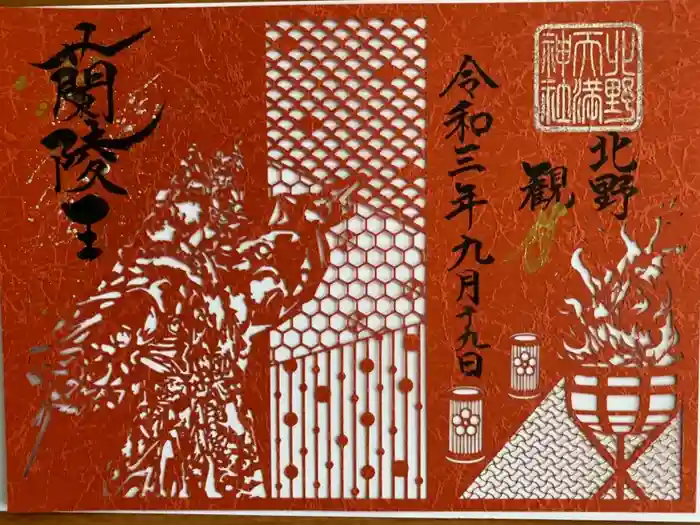 北野天満神社
北野
観
令和三年九月十九日
蘭陵王